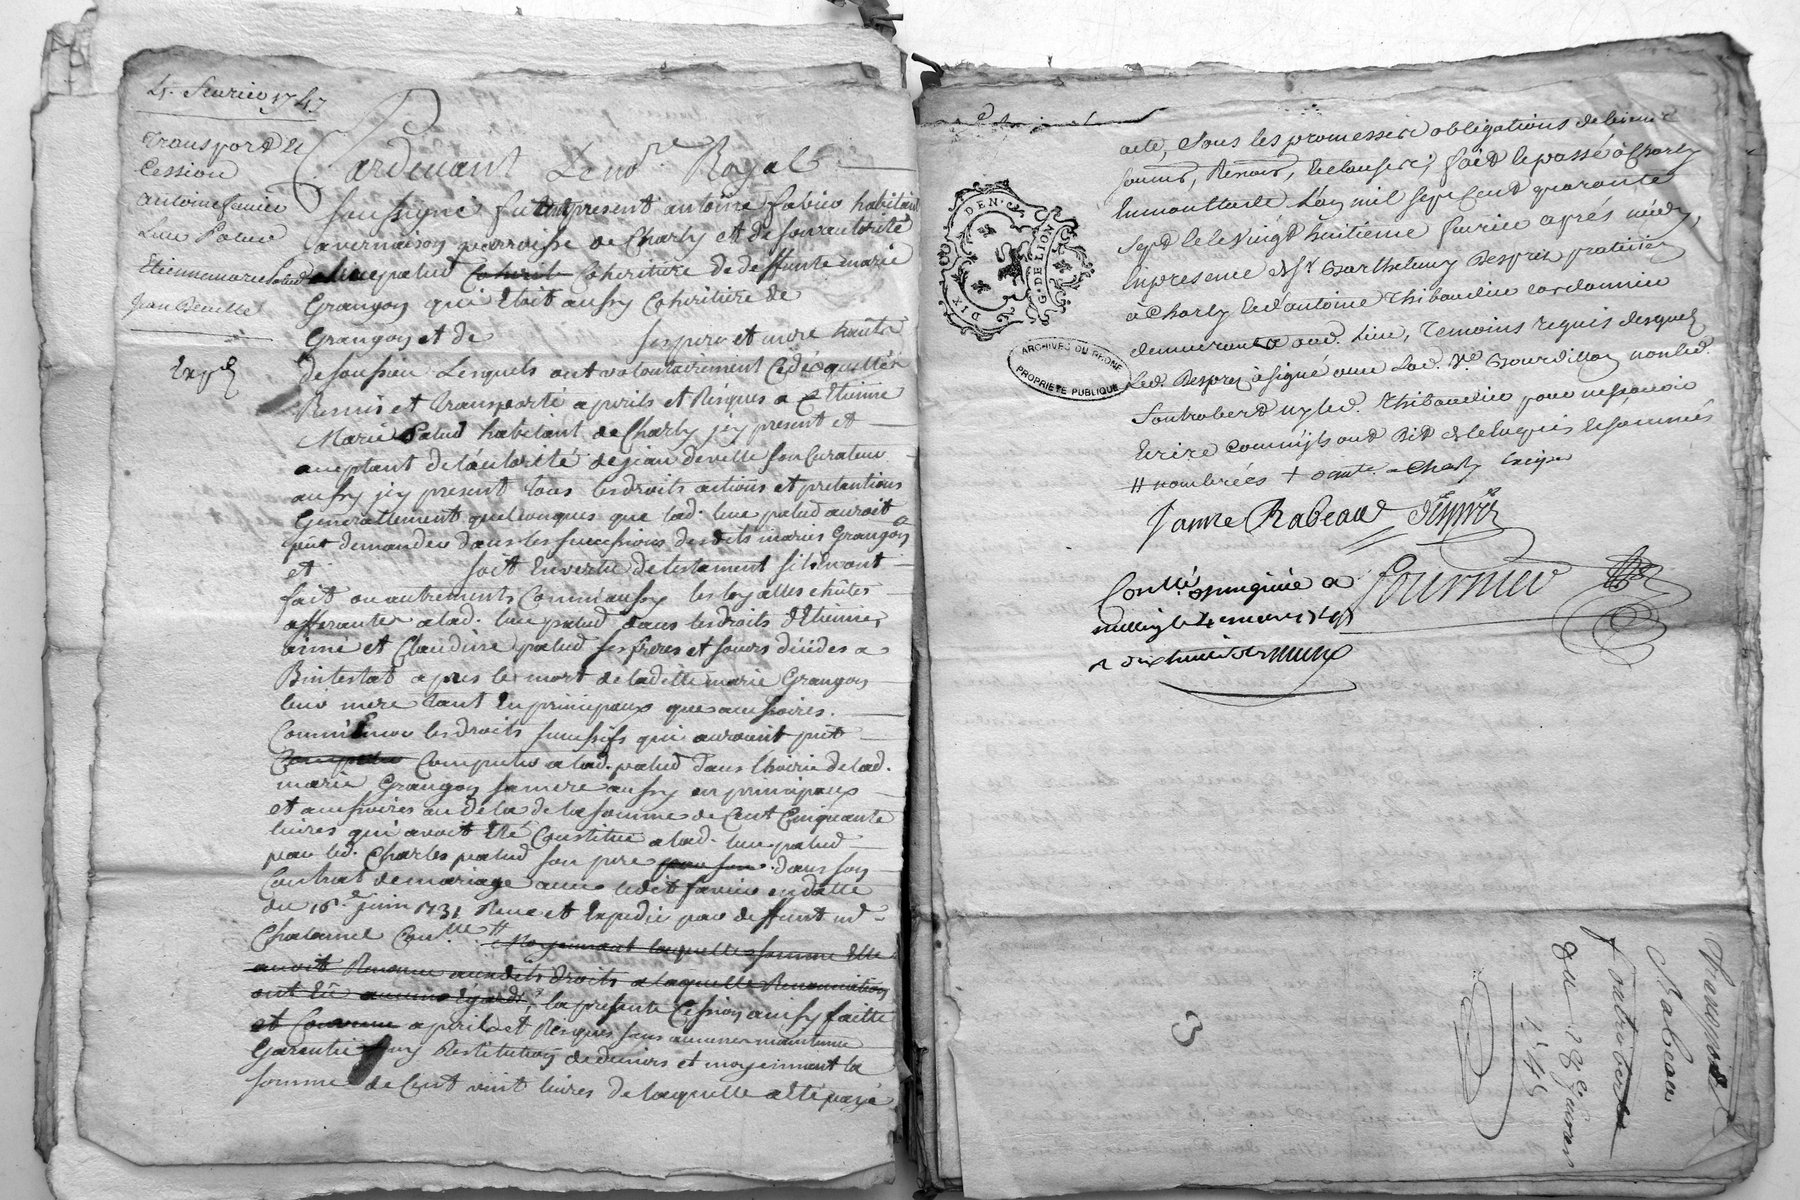 4. feurier 1747
Transport et
Cession
antoine favier
Luce Palud
Etienne marie Palud
Jean Deville
Exp.é
Pardeuant Le no.re Royal
soussigné fut present antoine fabier habitant
a vernaison parroisse de Charly et de son autorité
palud Coherit Coheritiere de deffunte marie
Grangon qui Etoit aussy Coheritiere de
Grangon et de ses pere et mere
Lesquels ont volontairement Cedé quitté
Remis et transporté a perils et Risques a Etienne
Marie Palud habitant de Charly jcy present et
acceptant de l'autorité de jean deville son Curateur
aussy jcy present tous les droits actions et pretentions
Generallement quelconques que lad. Luce palud auroit
pût demander dans les successions desdits maries Grangon
et soit En vertu de testament s'ils En ont
fait ou autrement, Comm'aussy les
afferantes a lad. Luce palud dans les droits d'Etienne,
et Claudine palud ses freres et sœurs décédes a
Bintestat apres la mort de ladette marie Grangon
leur mere tant En principaux que accessoires.
Comm'Encor les droits successifs qui auroient pût
Competer Competer a lad. palud dans l'hoirie de lad.
marie Grangon sa mere aussy en principaux
et accessoires au dela de la somme de Cent Cinquante
liures qui avoit Eté Constitué a lad. Luce palud
par led. Charles palud son pere par son dans son
Contrat de mariage avec ledit favier en datte
du 16.e juin 1731 Receu et Expedié par deffunt m.e
Chalamel
Moyennant laquelle somme Elle
auoit Renoncé auxdits droits a laquelle Renonciation
ont Eû aucuns Egards, la presente Cession ainsy faitte
et Convenue a perils et Risques sans aucune maintenue
Garentie ny Restitution de deniers et moyennant la
somme de Cent vint liures de laquelle a Eté payé
acte, sous les promesses obligations de biens
soumis, Renon, et clauses; fait et passé a Charly
L'an mil sept Cent quarante
sept et le vingt huitieme feurier aprés midy,
En presence de s.r Barthelemy Desprez praticien
a Charly et d'antoine Thibaudier cordonnier
demeurant aud. Lieu, Temoins requis desquels
Led. Desprez a signé avec Lad. V.e Bourdillon non led.
Fontrobert ny led. Thibaudier pour ne sçavoir
Ecrire Comm'ils ont Dit de le sommés
Janne Rabeaud Desprez
Fournier
Con.llé a
4 mars 1747
DIX DEN.
G. DE LION
ARCHIVES DU RHONE
PROPRIÉTÉ PUBLIQUE
3
Transport
Rabeau
Fontrobert
Du 28.e feurier
1745